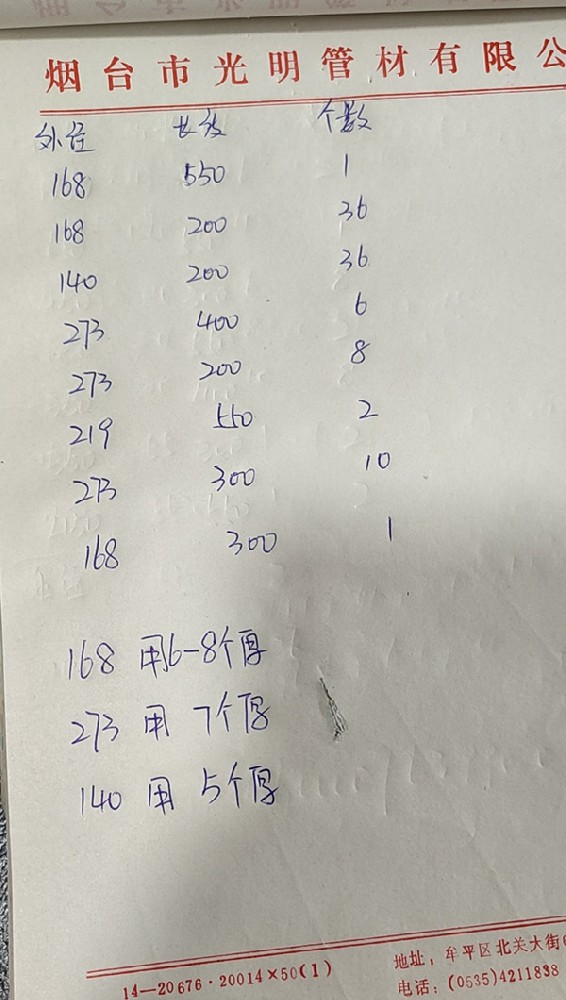 烟台市光明管材有限公
外径 长度 个数
168 550 1
168 200 36
140 200 36
273 400 6
273 200 8
219 550 2
273 300 10
168 300 1
168 用6-8个厚
273 用 7个厚
140 用 5个厚
14—20676·20014×50(1)
地址：牟平区北关大街6
电话：(0535)4211838